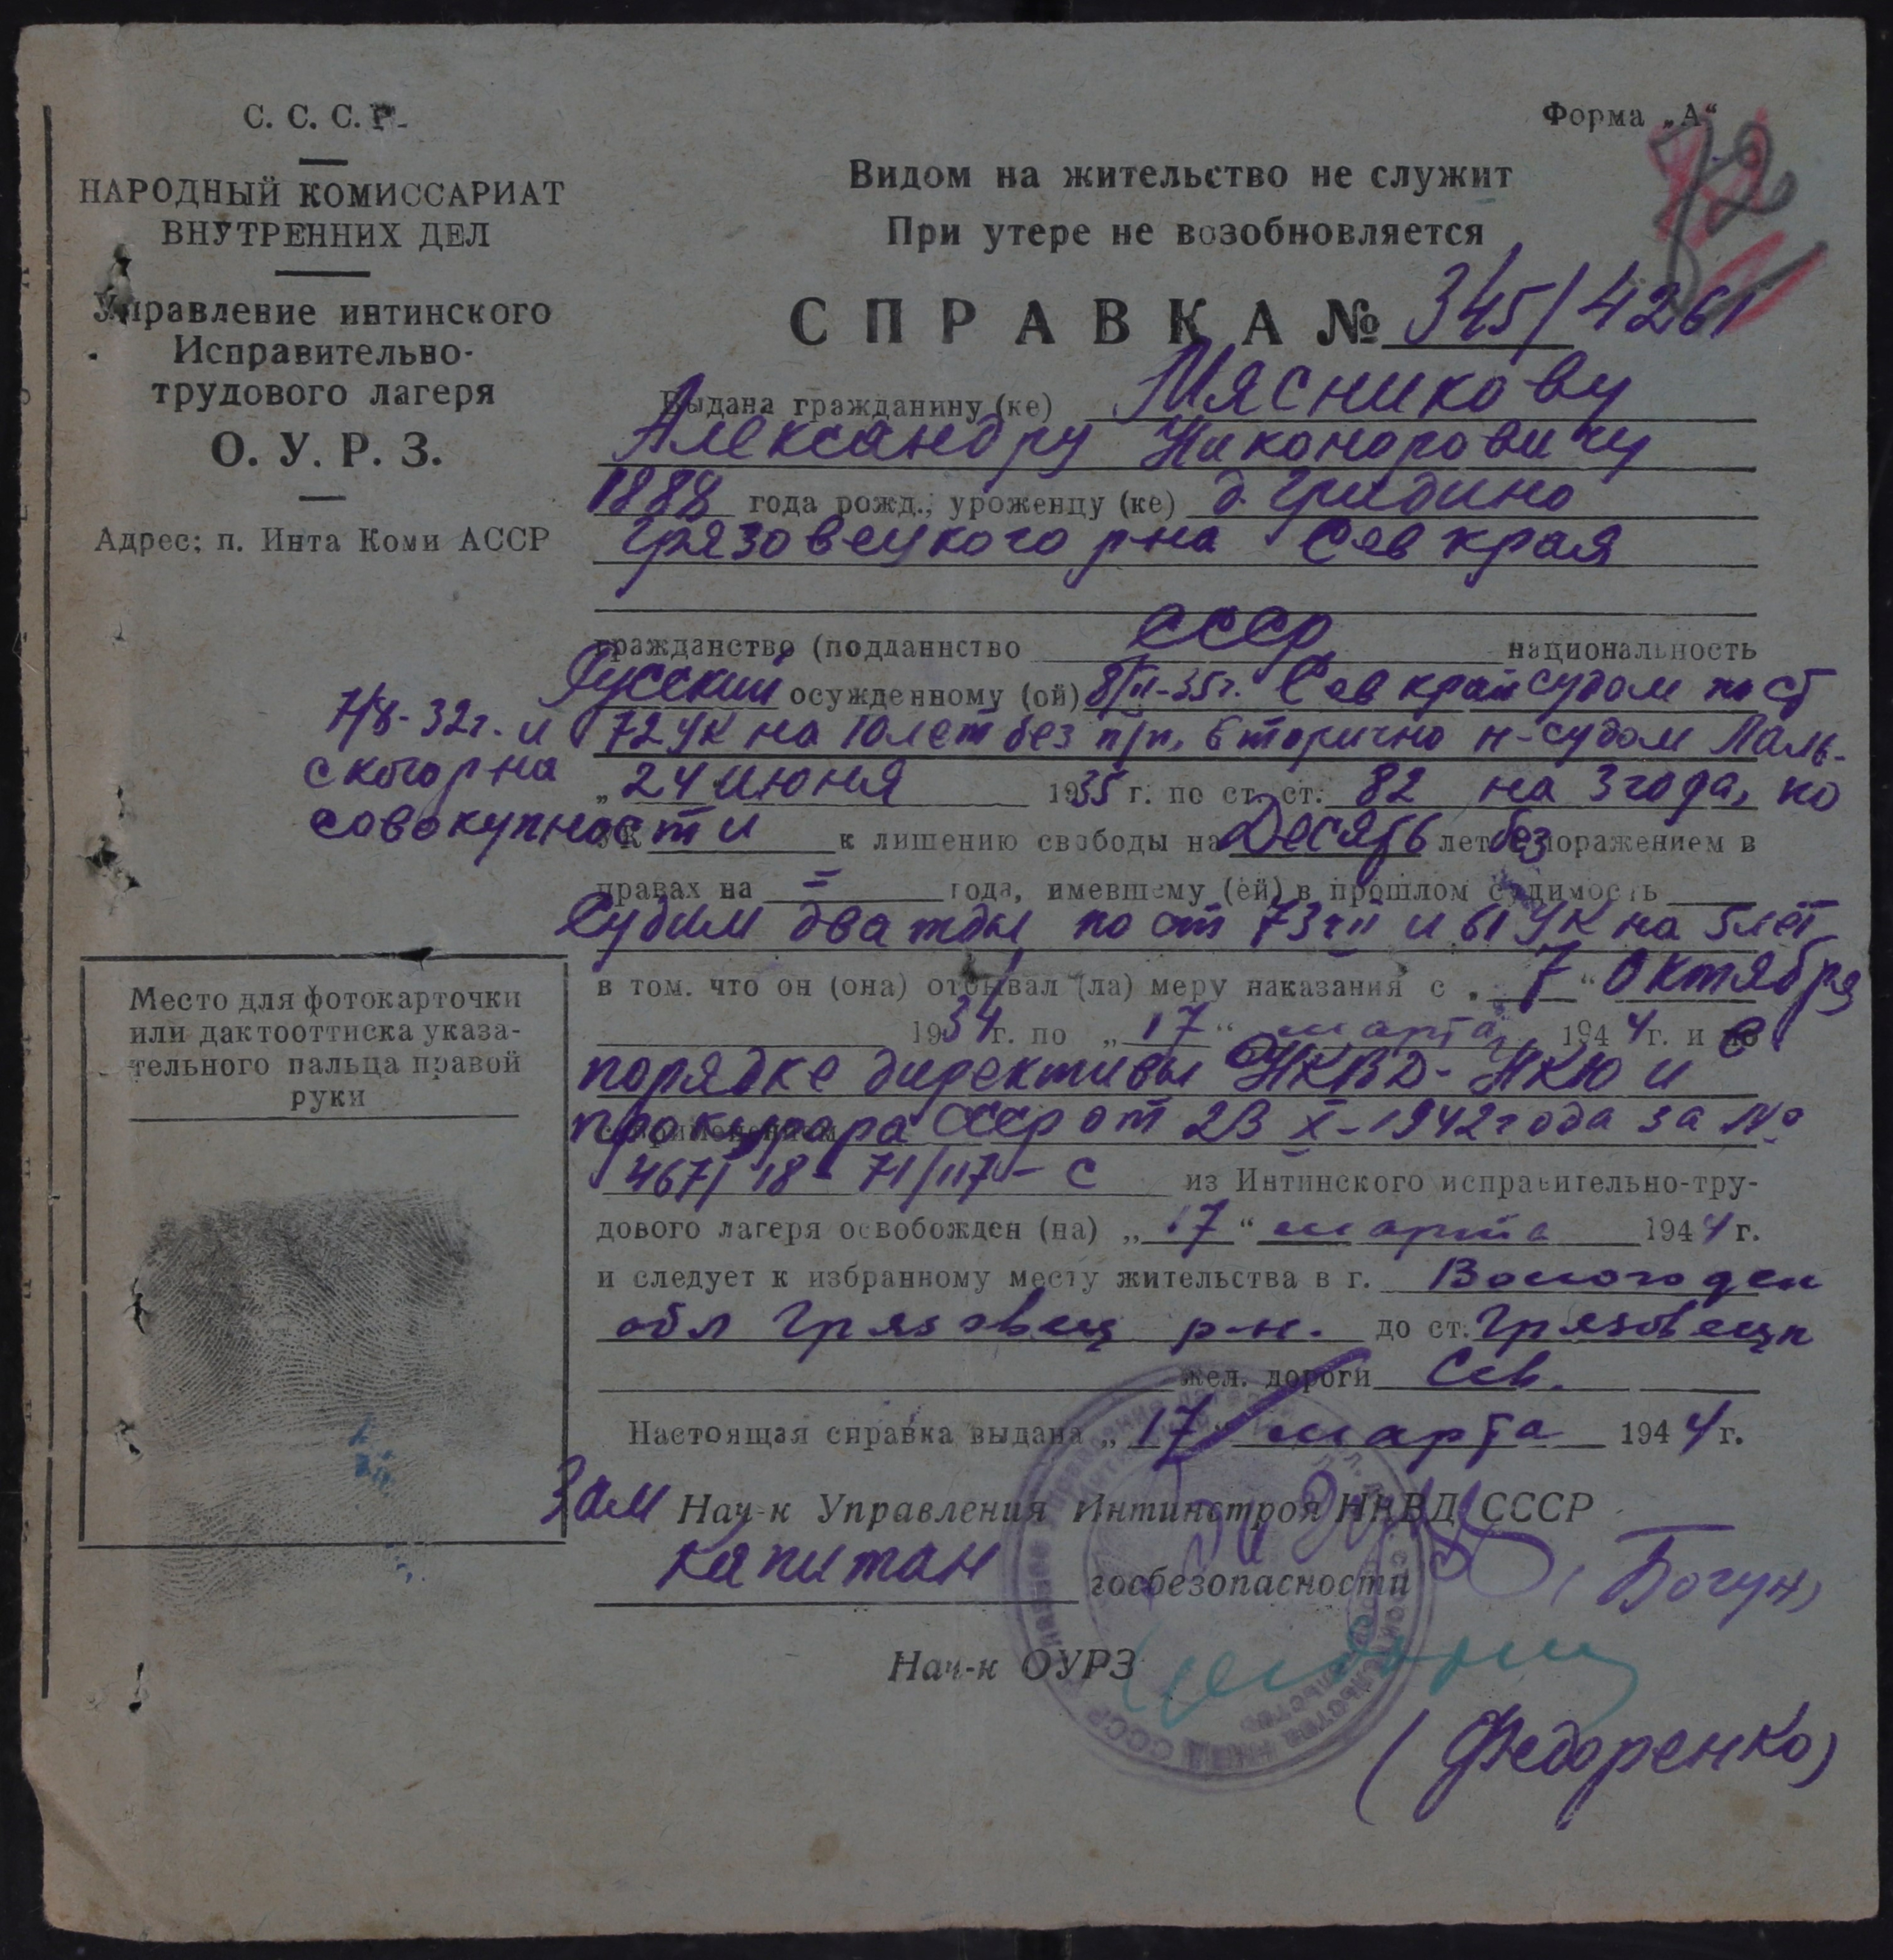 С. С. С. Р.
НАРОДНЫЙ КОМИССАРИАТ
ВНУТРЕННИХ ДЕЛ
Управление интинского
Исправительно-
трудового лагеря
О. У. Р. З.
Адрес: п. Инта Коми АССР
Форма „А“
72
Видом на жительство не служит
При утере не возобновляется
СПРАВКА № 345/4261
Выдана гражданину (ке) Мясникову
Александру Никоноровичу
1888 года рожд., уроженцу (ке) д. Гридино
Грязовецкого р-на Сев края
гражданство (подданнство СССР национальность
Русский осужденному (ой) 8/II-35г. Сев крайсудом по ст
7/8-32г. и 72 УК на 10 лет без п/п, вторично н-судом Лаль-
ского р-на „24 июня 1935 г. по ст. ст. 82 на 3 года, по
совокупности УК к лишению свободы на Десять лет без поражением в
правах на = года, имевшему (ей) в прошлом судимость
Судим дважды по ст 73 ч II и 61 УК на 5 лет
в том. что он (она) отбывал (ла) меру наказания с „7“ Октября
1934 г. по „17“ марта 1944 г. и в
порядке директивы НКВД- НКЮ и
прокурора СССР от 23 X-1942 года за №
467/18-71/117-С из Интинского исправительно-тру-
дового лагеря освобожден (на) „17“ марта 1944 г.
и следует к избранному месту жительства в г. Вологодск
обл Грязовец р-н. до ст. Грязовец
жел. дороги Сев.
Настоящая справка выдана „17“ марта 1944 г.
Зам Нач-к Управления Интинстроя НКВД СССР
капитан госбезопасности (Богун)
Нач-к ОУРЗ
(Федоренко)
Место для фотокарточки
или дактооттиска указа-
тельного пальца правой
руки